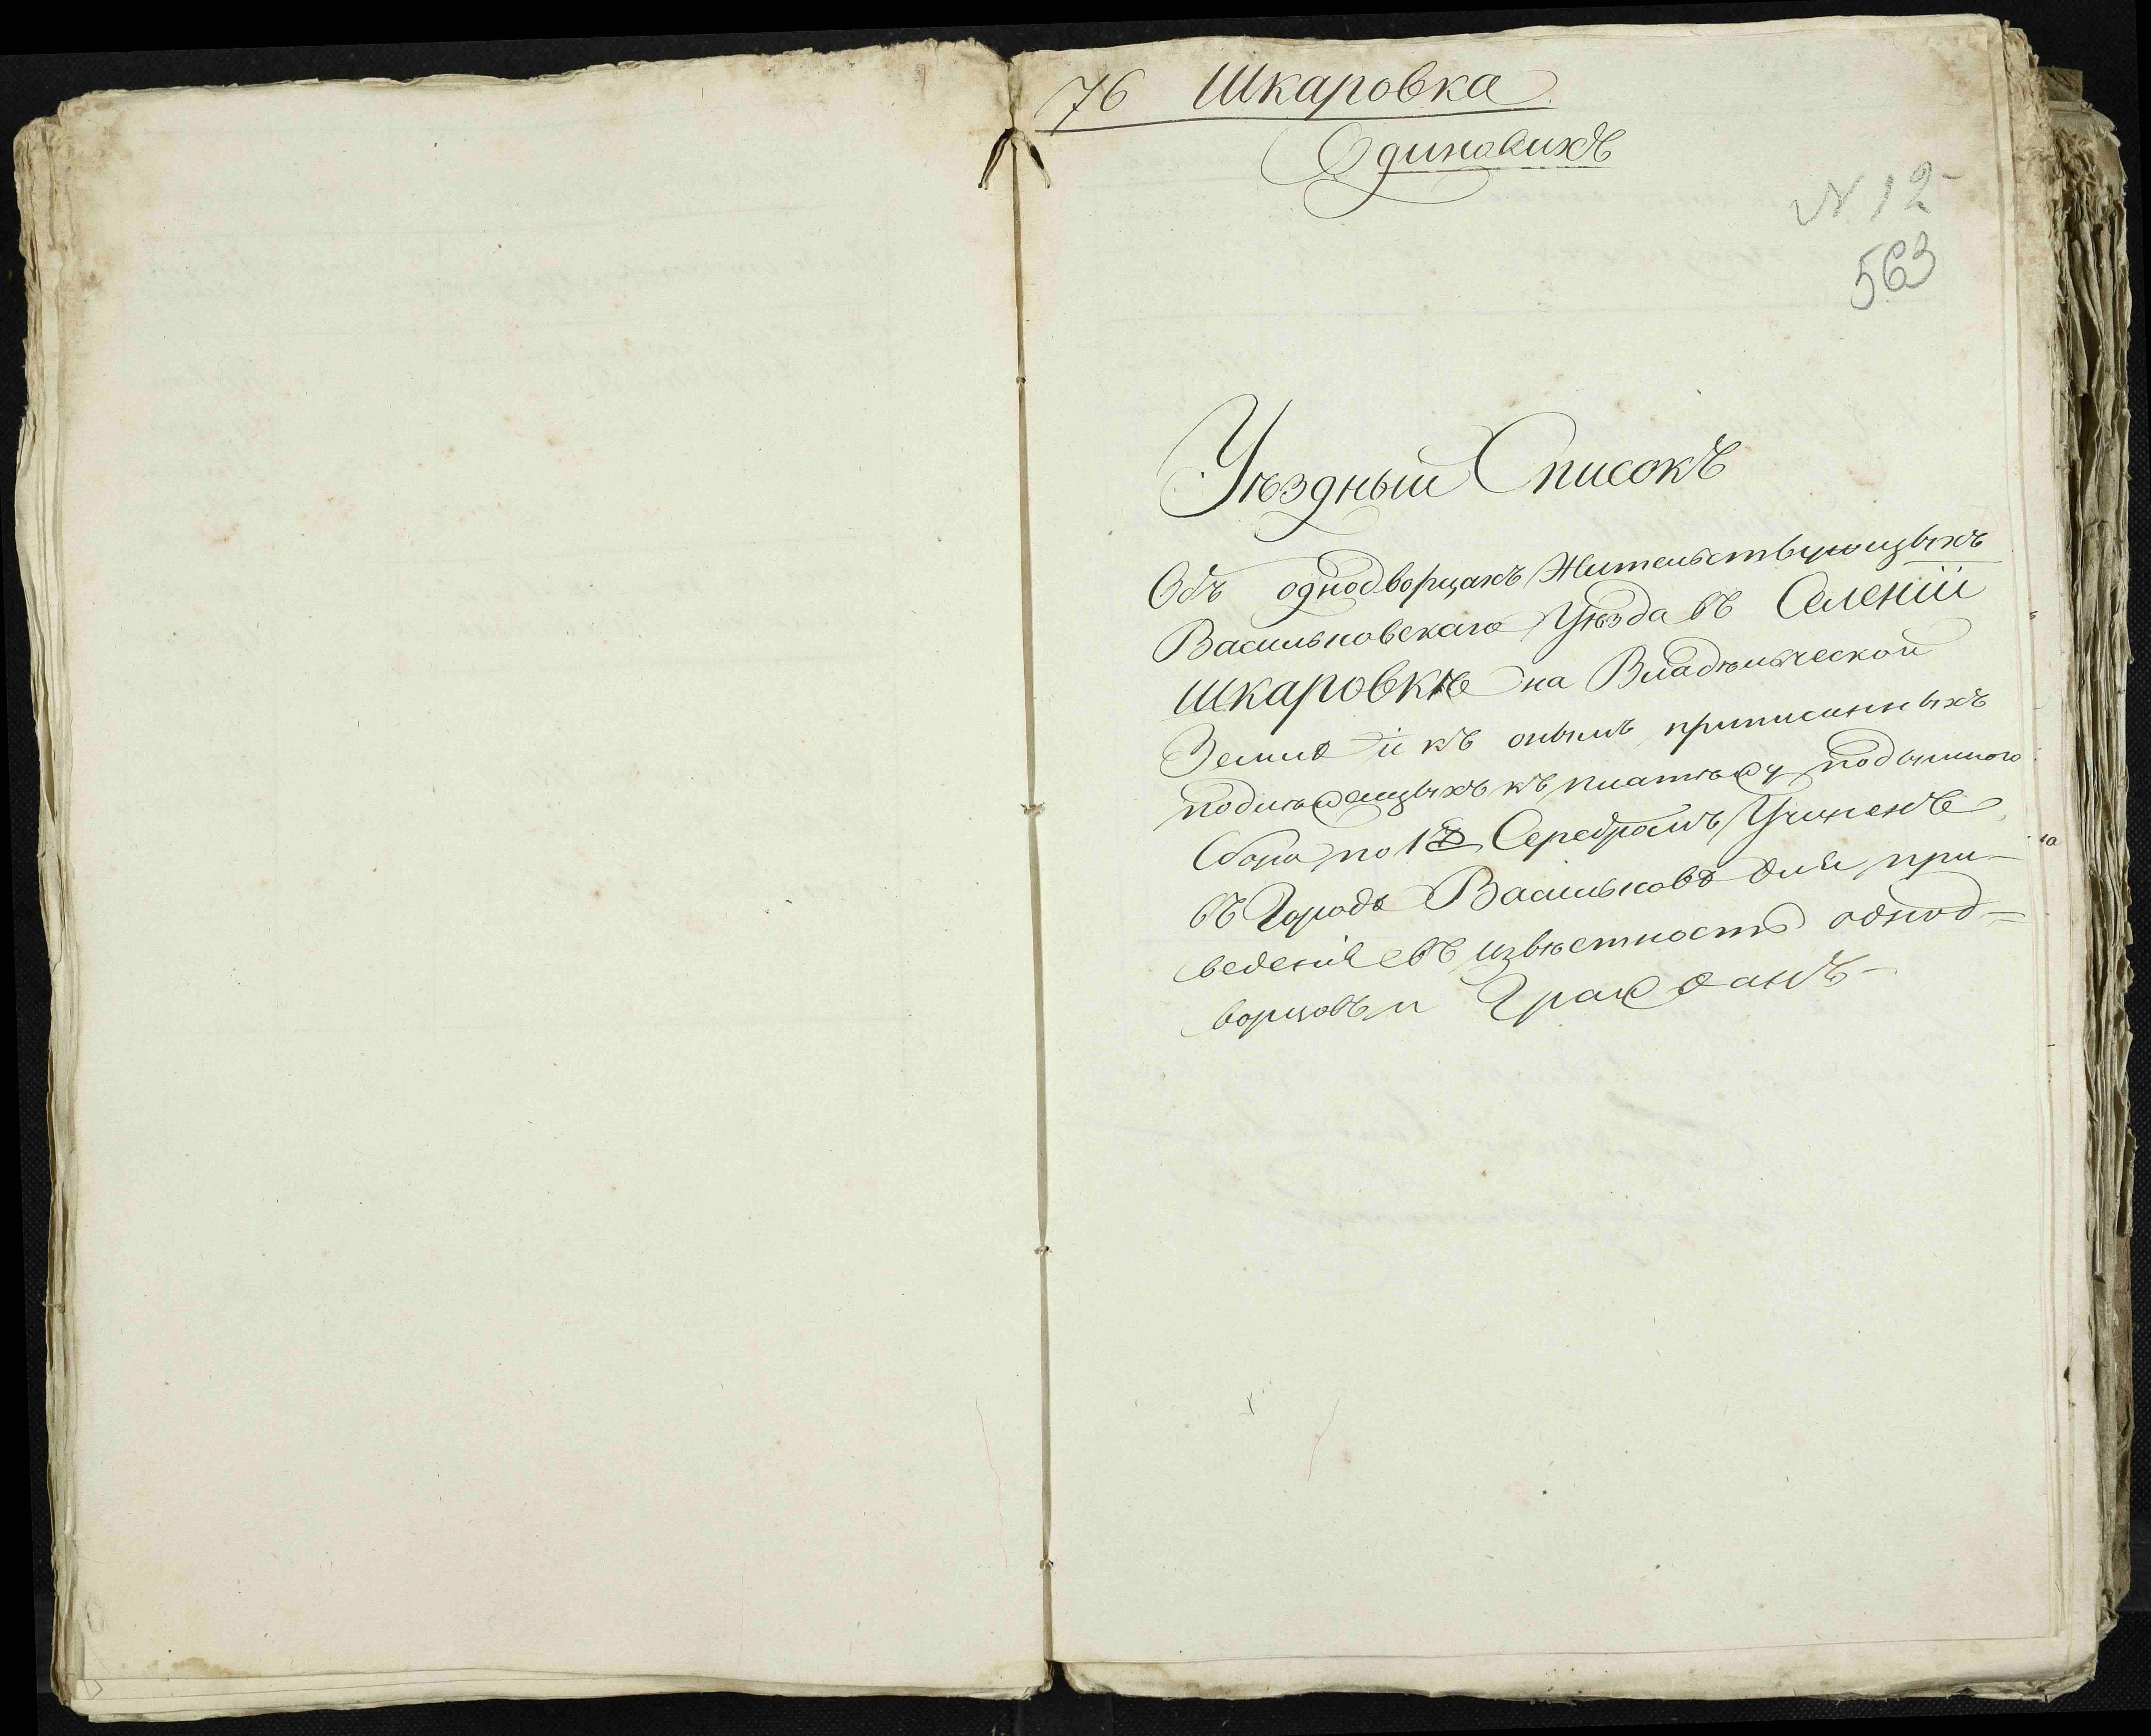 76 Шкаровка
Одинокихъ
N 12
563
Уѣздный Списокъ
Объ однодворцахъ Жительствующыхъ
Васильковскаго Уѣзда въ Селеніи
Шкаровкѣ на Владѣльческой
Землѣ и къ онымъ приписанныхъ
подлежащыхъ къ платежу подымного
Сбора по 1 Серебромъ Учиненъ
въ Городѣ Васильковѣ для при-
веденія въ извѣстность однод-
ворцовъ и Гражданъ